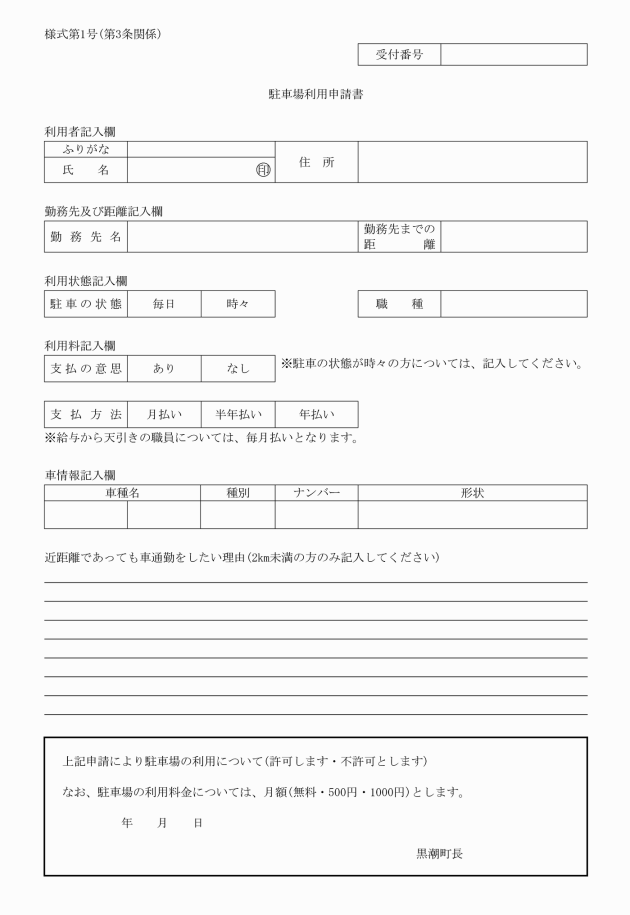 様式第1号(第3条関係)
受付番号
駐車場利用申請書
利用者記入欄
ふりがな
氏　　名　㊞　住　所
勤務先及び距離記入欄
勤務先名　勤務先までの
距　　　　離
利用状態記入欄
駐車の状態　毎日　時々　職　　種
利用料記入欄
支払の意思　あり　なし　※駐車の状態が時々の方については、記入してください。
支払方法　月払い　半年払い　年払い
※給与から天引きの職員については、毎月払いとなります。
車情報記入欄
車種名　種別　ナンバー　形状
近距離であっても車通勤をしたい理由(2km未満の方のみ記入してください)
上記申請により駐車場の利用について(許可します・不許可とします)
なお、駐車場の利用料金については、月額(無料・500円・1000円)とします。
年　　月　　日
黒潮町長